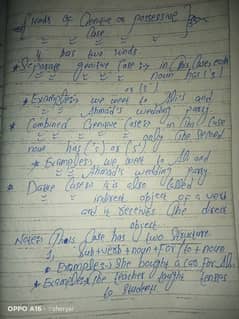 Kinds of Genitive or possessive
Case
it has two kinds
* Separate genitive Case:> in this Case each
noun has ('s)
or (s')
* Examples> we meet to Ali's and
Ahmad's wedding party
* Combined Genitive Case:> in this Case
only the second
noun has ('s) or (s')
* Examples> we meet to Ali and
Ahmad's wedding party
* Dative Case:> it is also called
indirect object of a verb
and it receives the direct
object.
Note:> This Case has two structure
1, Sub+verb+noun+For/to+noun
* Examples> She bought a car for Ali
* Examples> the teacher taught tenses
to students.
OPPO A16